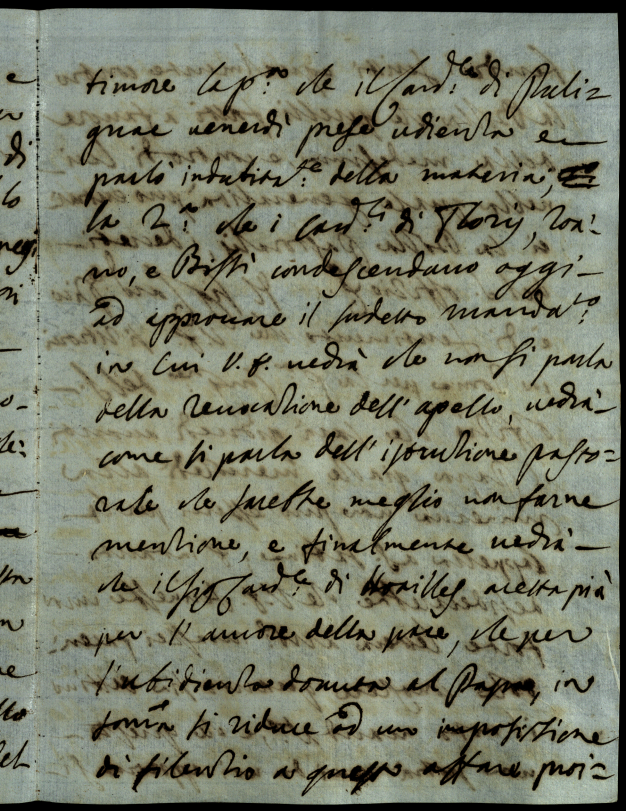 timore la p.ª che il Card.le di Poli=
gnac venerdì prese udienza e
parlò indubita.te della materia;
la 2.ª che i Card.li di Flory, Roà=
no, e Bissi condescendano oggi
ad approvare il sudetto manda.to
in cui V. E. vedrà che non si parla
della revocatione dell'apello, vedrà
come si parla dell'istrutione pasto=
rale che sarebbe meglio non farne
mentione, e finalmente vedrà
che il Sig Card.le di Noailles acetta più
per l'amore della pace, che per
l'ubidienza dovuta al Papa, in
soma si riduce ad una impositione
di silentio a questo affare